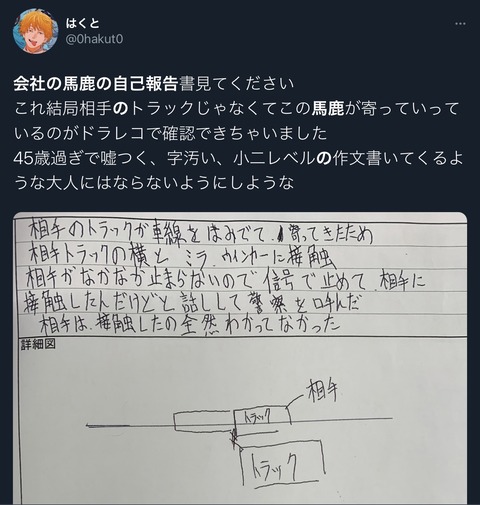 はくと
@0hakut0
会社の馬鹿の自己報告書見てください
これ結局相手のトラックじゃなくてこの馬鹿が寄っていって
いるのがドラレコで確認できちゃいました
45歳過ぎで嘘つく、字汚い、小二レベルの作文書いてくるよ
うな大人にはならないようにしような
相手のトラックが車線をはみでて、寄ってきたため
相手トラックの横と ミラ、ウインカーに接触
相手がなかなか止まらないので 信号で止めて、相手に
接触したんだけどと 話しして 警察を呼んだ
相手は、接触したの全然わかってなかった
詳細図
相手
トラック
トラック